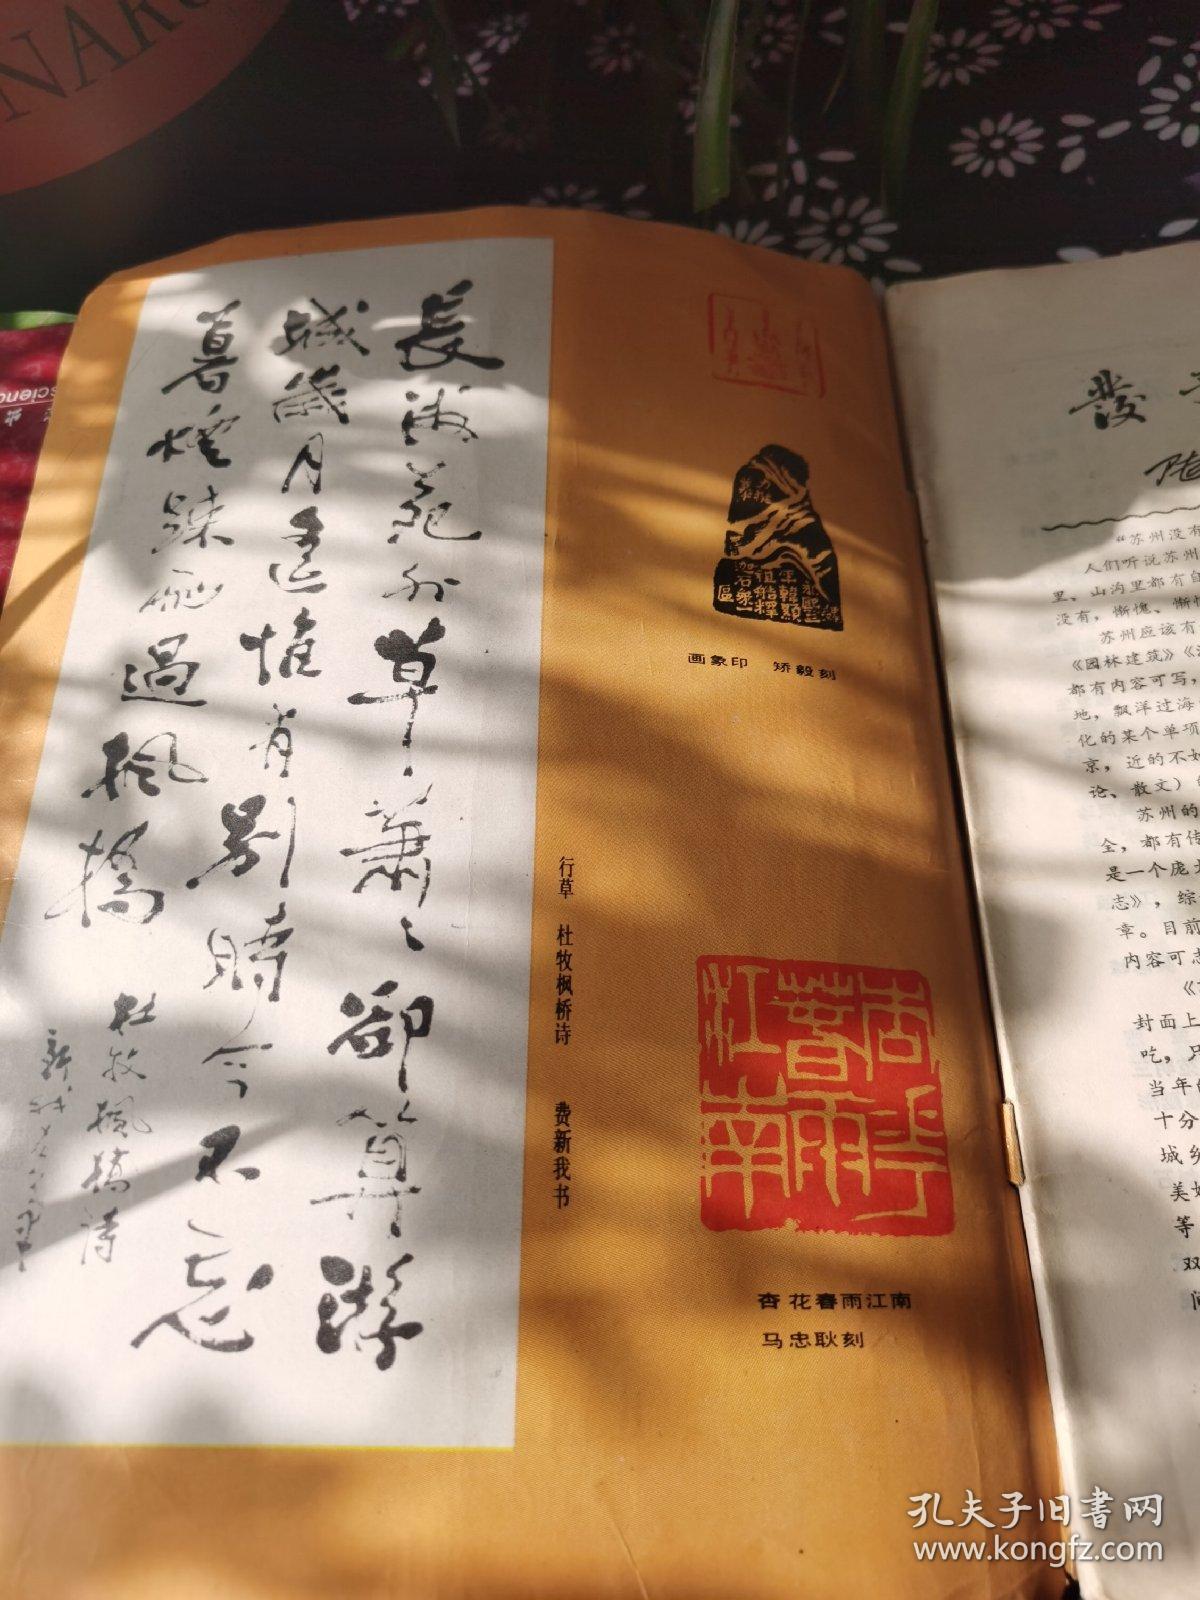 長洲苑外草蕭〻却算游
城歲月遙惟有別時今不忘
暮煙疎雨過楓橋
杜牧楓橋詩
行草 杜牧枫桥诗 费新我书
画象印 矫毅刻
杏花春雨江南
杏花春雨江南
马忠耿刻
發
陆
“苏州没有
人们听说苏州
里、山沟里都有自
没有，惭愧、惭愧
苏州应该有
《园林建筑》《
都有内容可写，
地，飘洋过海
化的某个单项
京，近的不如
论、散文）
苏州的
全，都有传
是一个庞大
志》，综
章。目前
内容可志
封面上
吃，只
当年的
十分
城乡
美如
等
双
问
孔夫子旧书网
www.kongfz.com
NAR
scienc